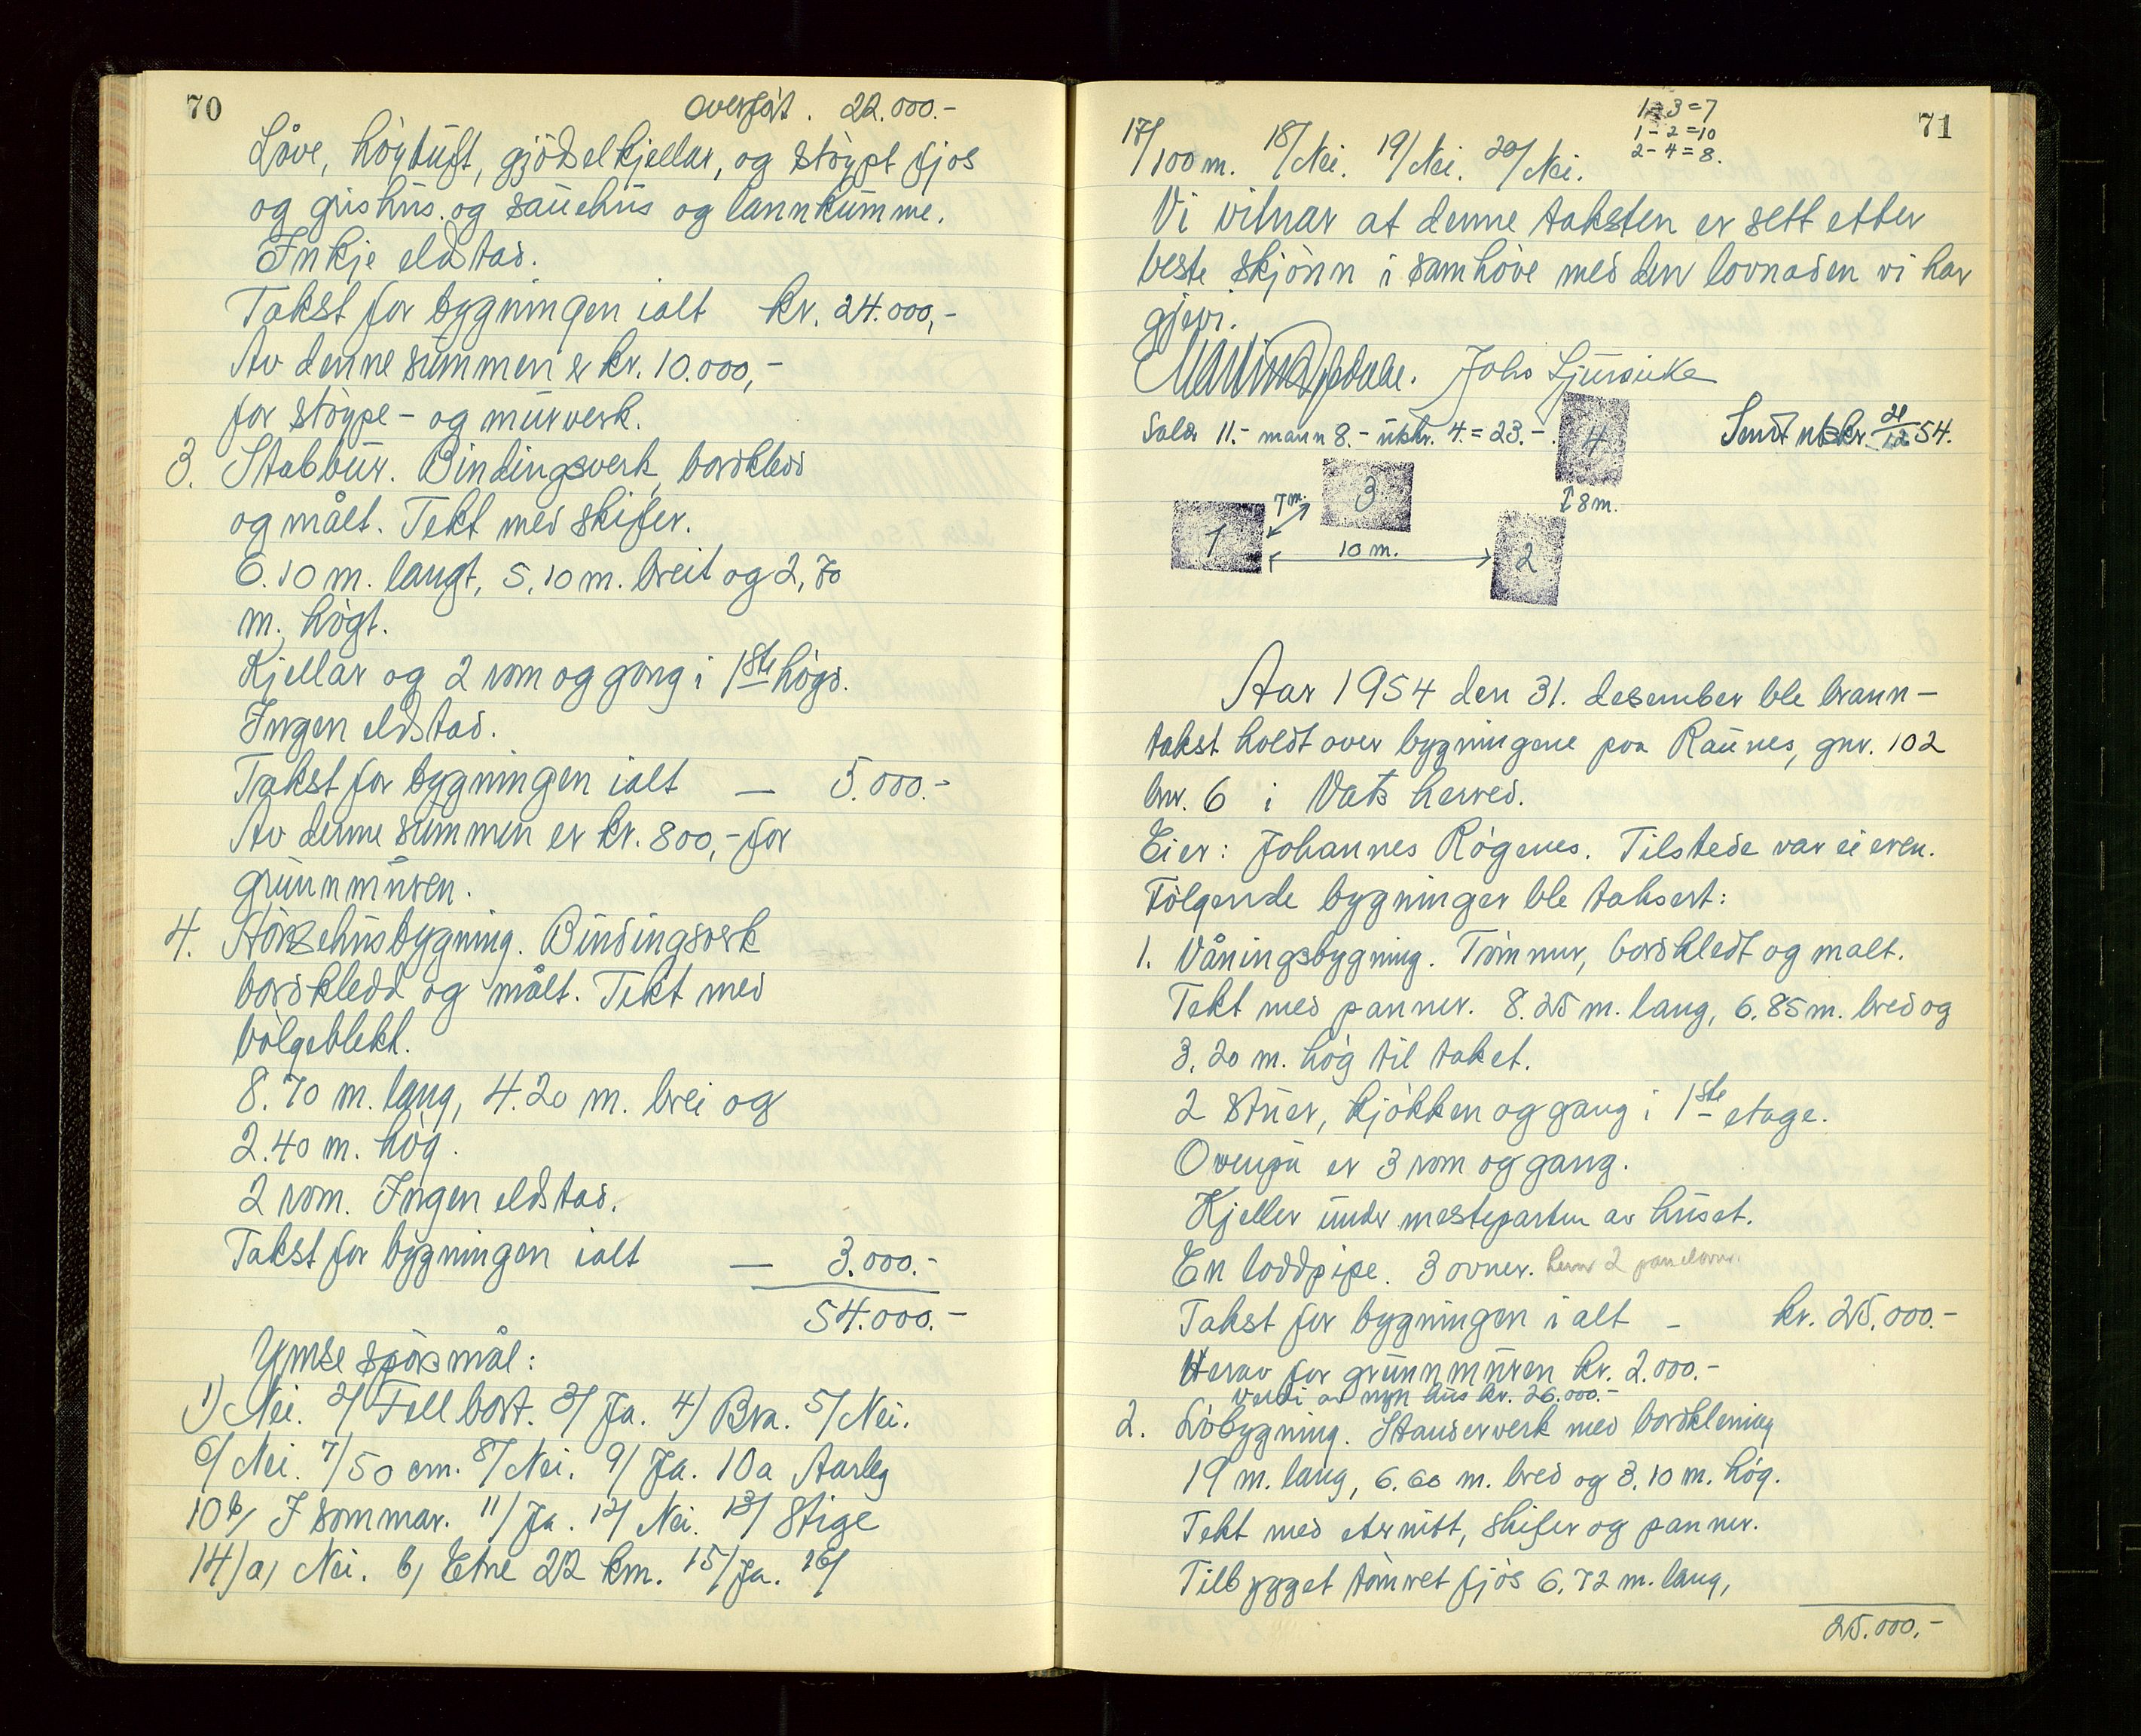 70
Overfört. 22.000.-
Låve, höytuft, gjödselkjellar, og stöypt fjos
og grishus og sauehus og lannkumme.
Inkje eldstad.
Takst for bygningen ialt kr. 24.000,-
Av denne summen er kr. 10.000,-
for stöype- og murverk.
3. Stabbur. Bindingsverk, bordkledd
og målt. Tekt med skifer.
6.10 m. langt, 5,10 m. breit og 2,70
m. högt.
Kjellar og 2 rom og gang i 1ste högd.
Ingen eldstad.
Takst for bygningen ialt — 5.000.-
Av denne summen er kr. 800,- for
grunnmuren.
4. Hönsehusbygning. Bindingsverk
bordkledd og målt. Tekt med
bölgeblekt.
8.70 m. lang, 4.20 m. brei og
2.40 m. hög.
2 rom. Ingen eldstad.
Takst for bygningen ialt — 3.000.-
54.000.-
Ymse spörsmål:
1) Nei. 2/ Fell bort. 3/ Ja. 4) Bra. 5/ Nei.
6/ Nei. 7/ 50 cm. 8/ Nei. 9/ Ja. 10a Aarleg
10b/ I sommar. 11/ Ja. 12/ Nei. 13/ Stige
14) a, Nei. b, Etne 22 km. 15/ Ja. 16/
71
1-3=7
1-2=10
2-4=8.
17/ 100 m. 18/ Nei. 19/ Nei. 20/ Nei.
Vi vitnar at denne taksten er sett etter
beste skjönn i samhöve med den lovnaden vi har
gjevi.
Johs Ljusvike
Salær 11.- mann 8.- utskr. 4.= 23.-.
Sendt utskr. 21/12 54.
4
3
7 m.
8 m.
1
10 m.
2
Aar 1954 den 31. desember ble brann-
takst holdt over bygningene paa Raunes, gnr. 102
bnr. 6 i Vats herred.
Eier: Johannes Rögenes. Tilstede var eieren.
Fölgende bygninger ble taksert:
1. Våningsbygning. Tömmer, bordkledt og malt.
Tekt med panner. 8.25 m. lang, 6.85 m. bred og
3.20 m. hög til taket.
2 stuer, kjökken og gang i 1ste etage.
Ovenpå er 3 rom og gang.
Kjeller under mesteparten av huset.
En loddpipe. 3 ovner. herav 2 panelovner.
Takst for bygningen i alt - kr. 25.000.-
Herav for grunnmuren kr. 2.000.-
Verdi av nytt hus kr. 26.000.-
2. Löbygning. Standerverk med bordkledning
19 m. lang, 6.60 m. bred og 3.10 m. hög.
Tekt med eternitt, skifer og panner.
Tilbygget tömret fjös 6.72 m. lang,
25.000,-